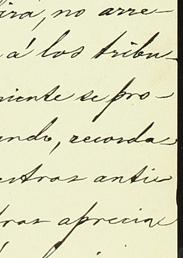 ira, no arre-
á los tribu-
niente se pro-
ando, recorda
estras antie
tras aprecia